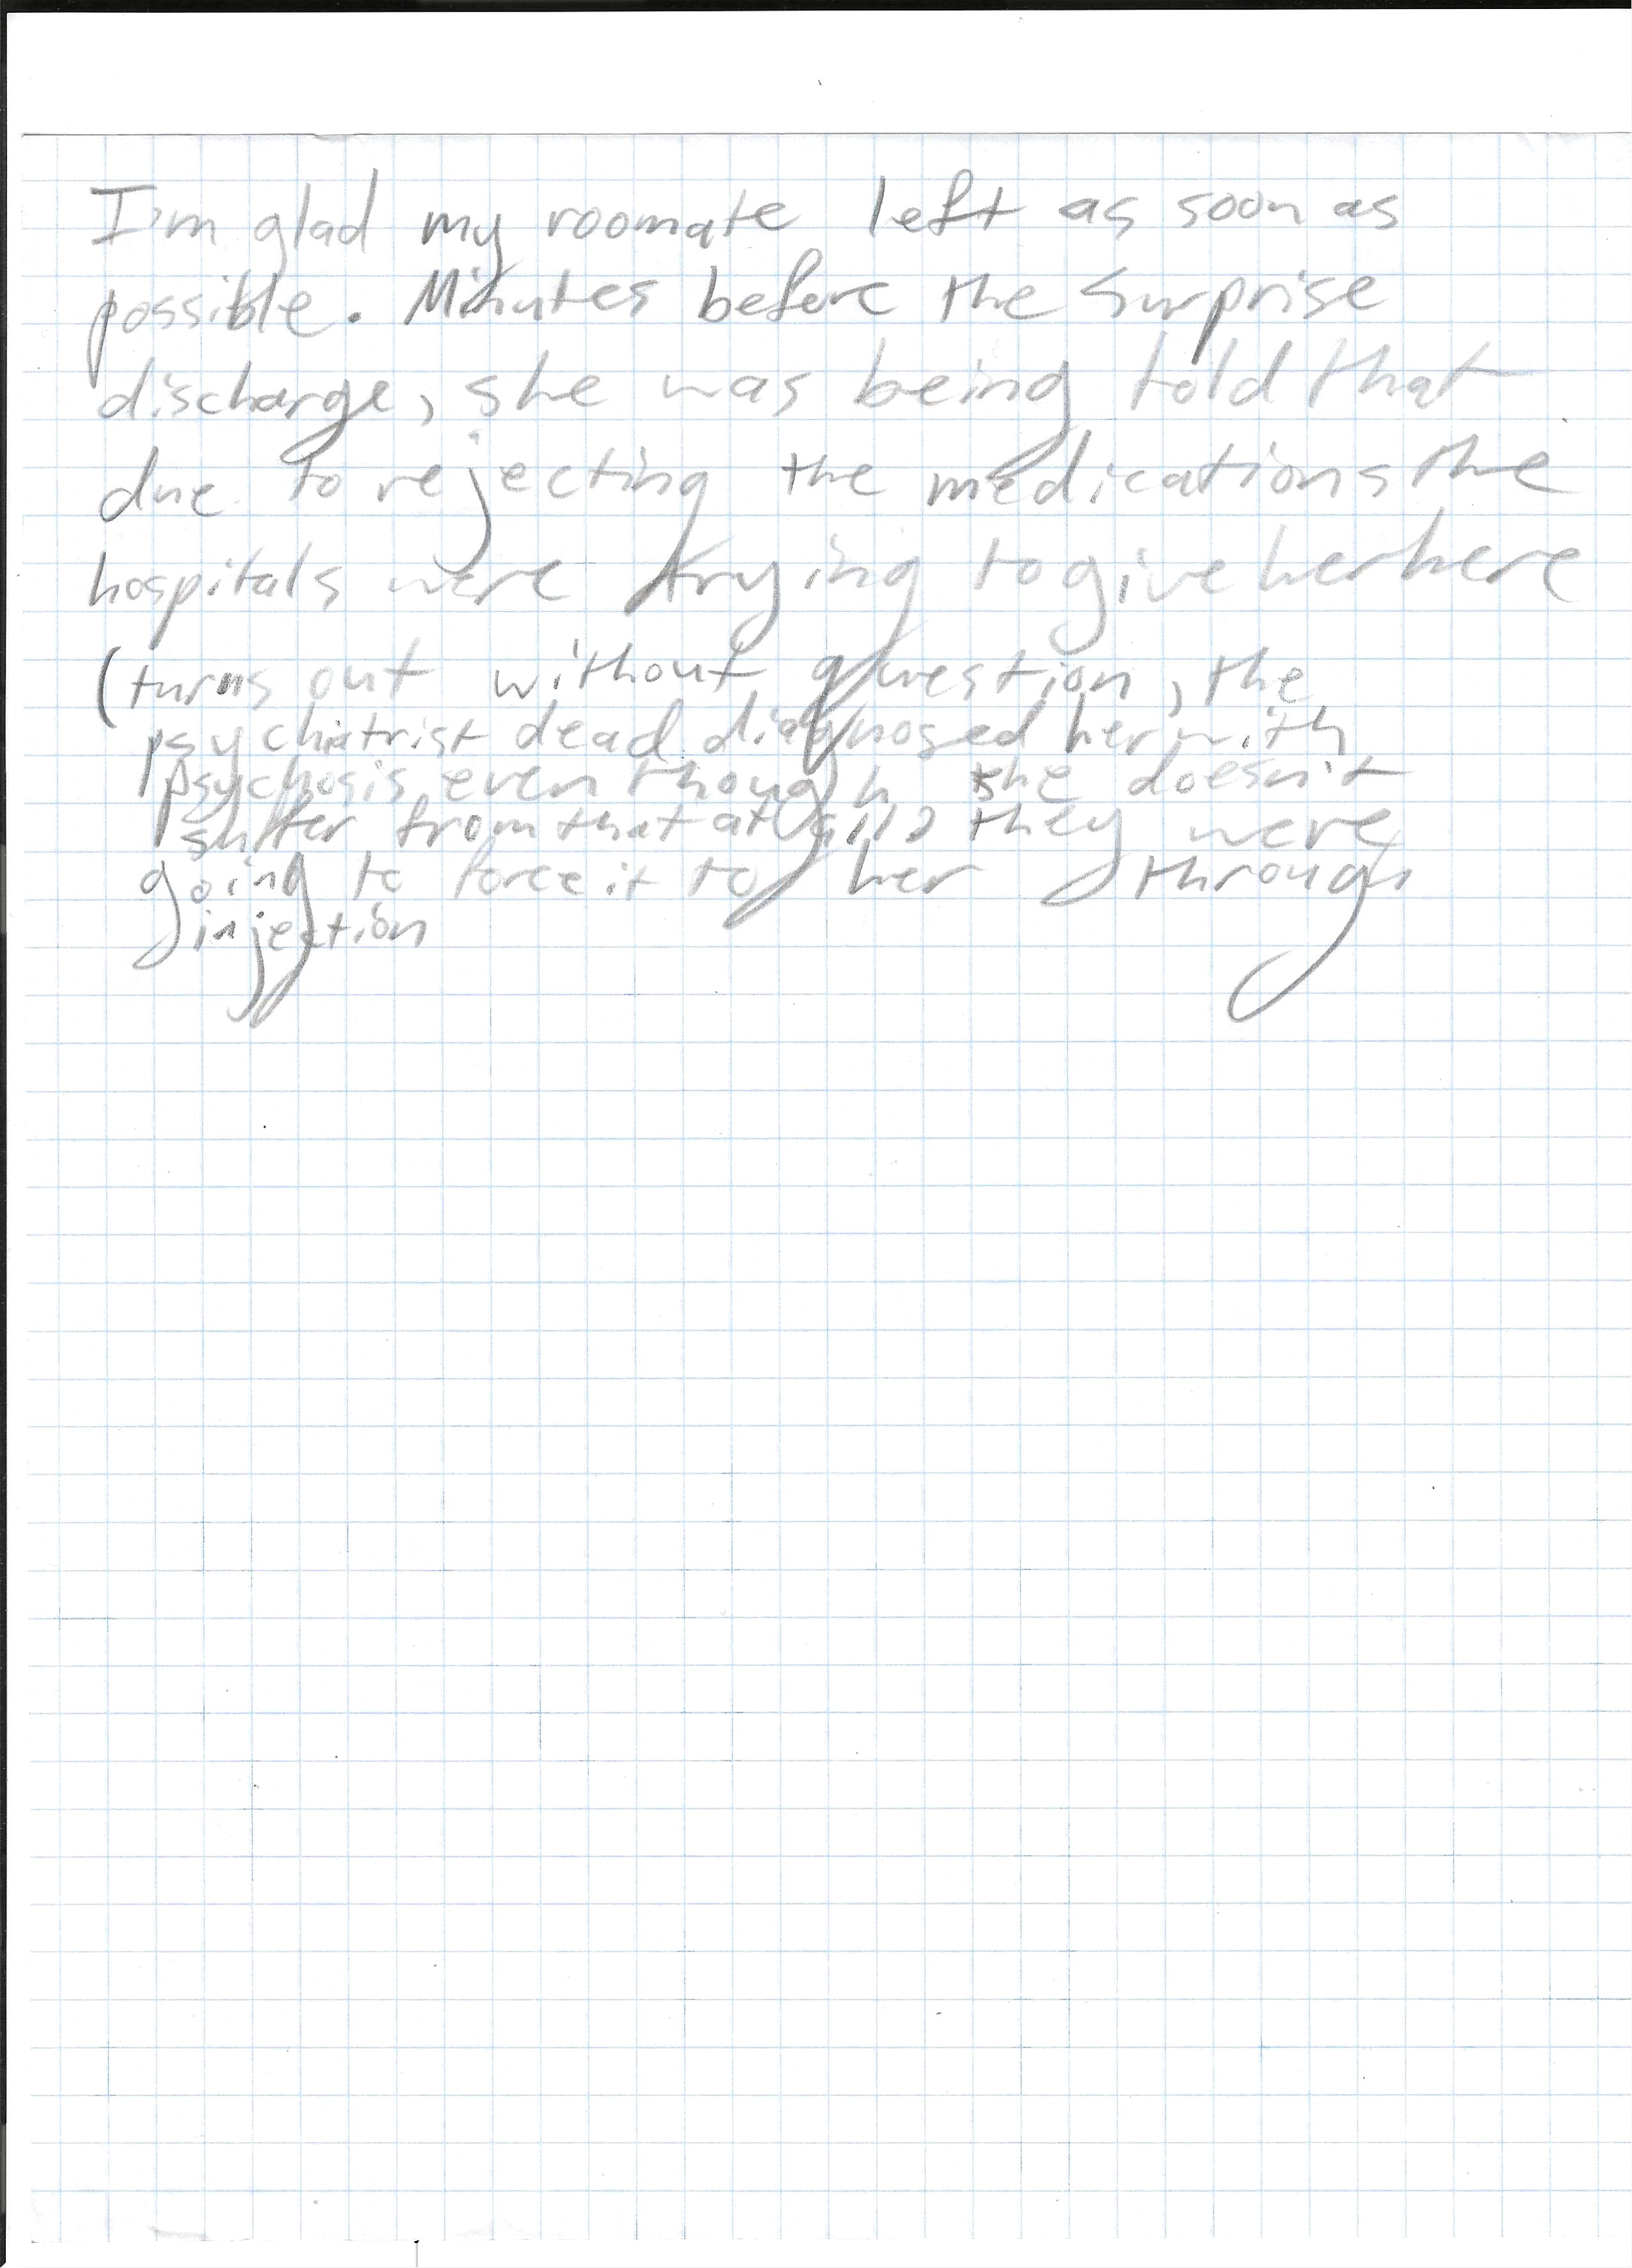 I'm glad my roomate left as soon as
possible. Minutes before the surprise
discharge, she was being told that
due to rejecting the medications the
hospitals were trying to give her here
(turns out without question, the
psychiatrist dead diagnosed her with
psychosis even though she doesn't
suffer from that at all) they were
going to force it to her through
injection